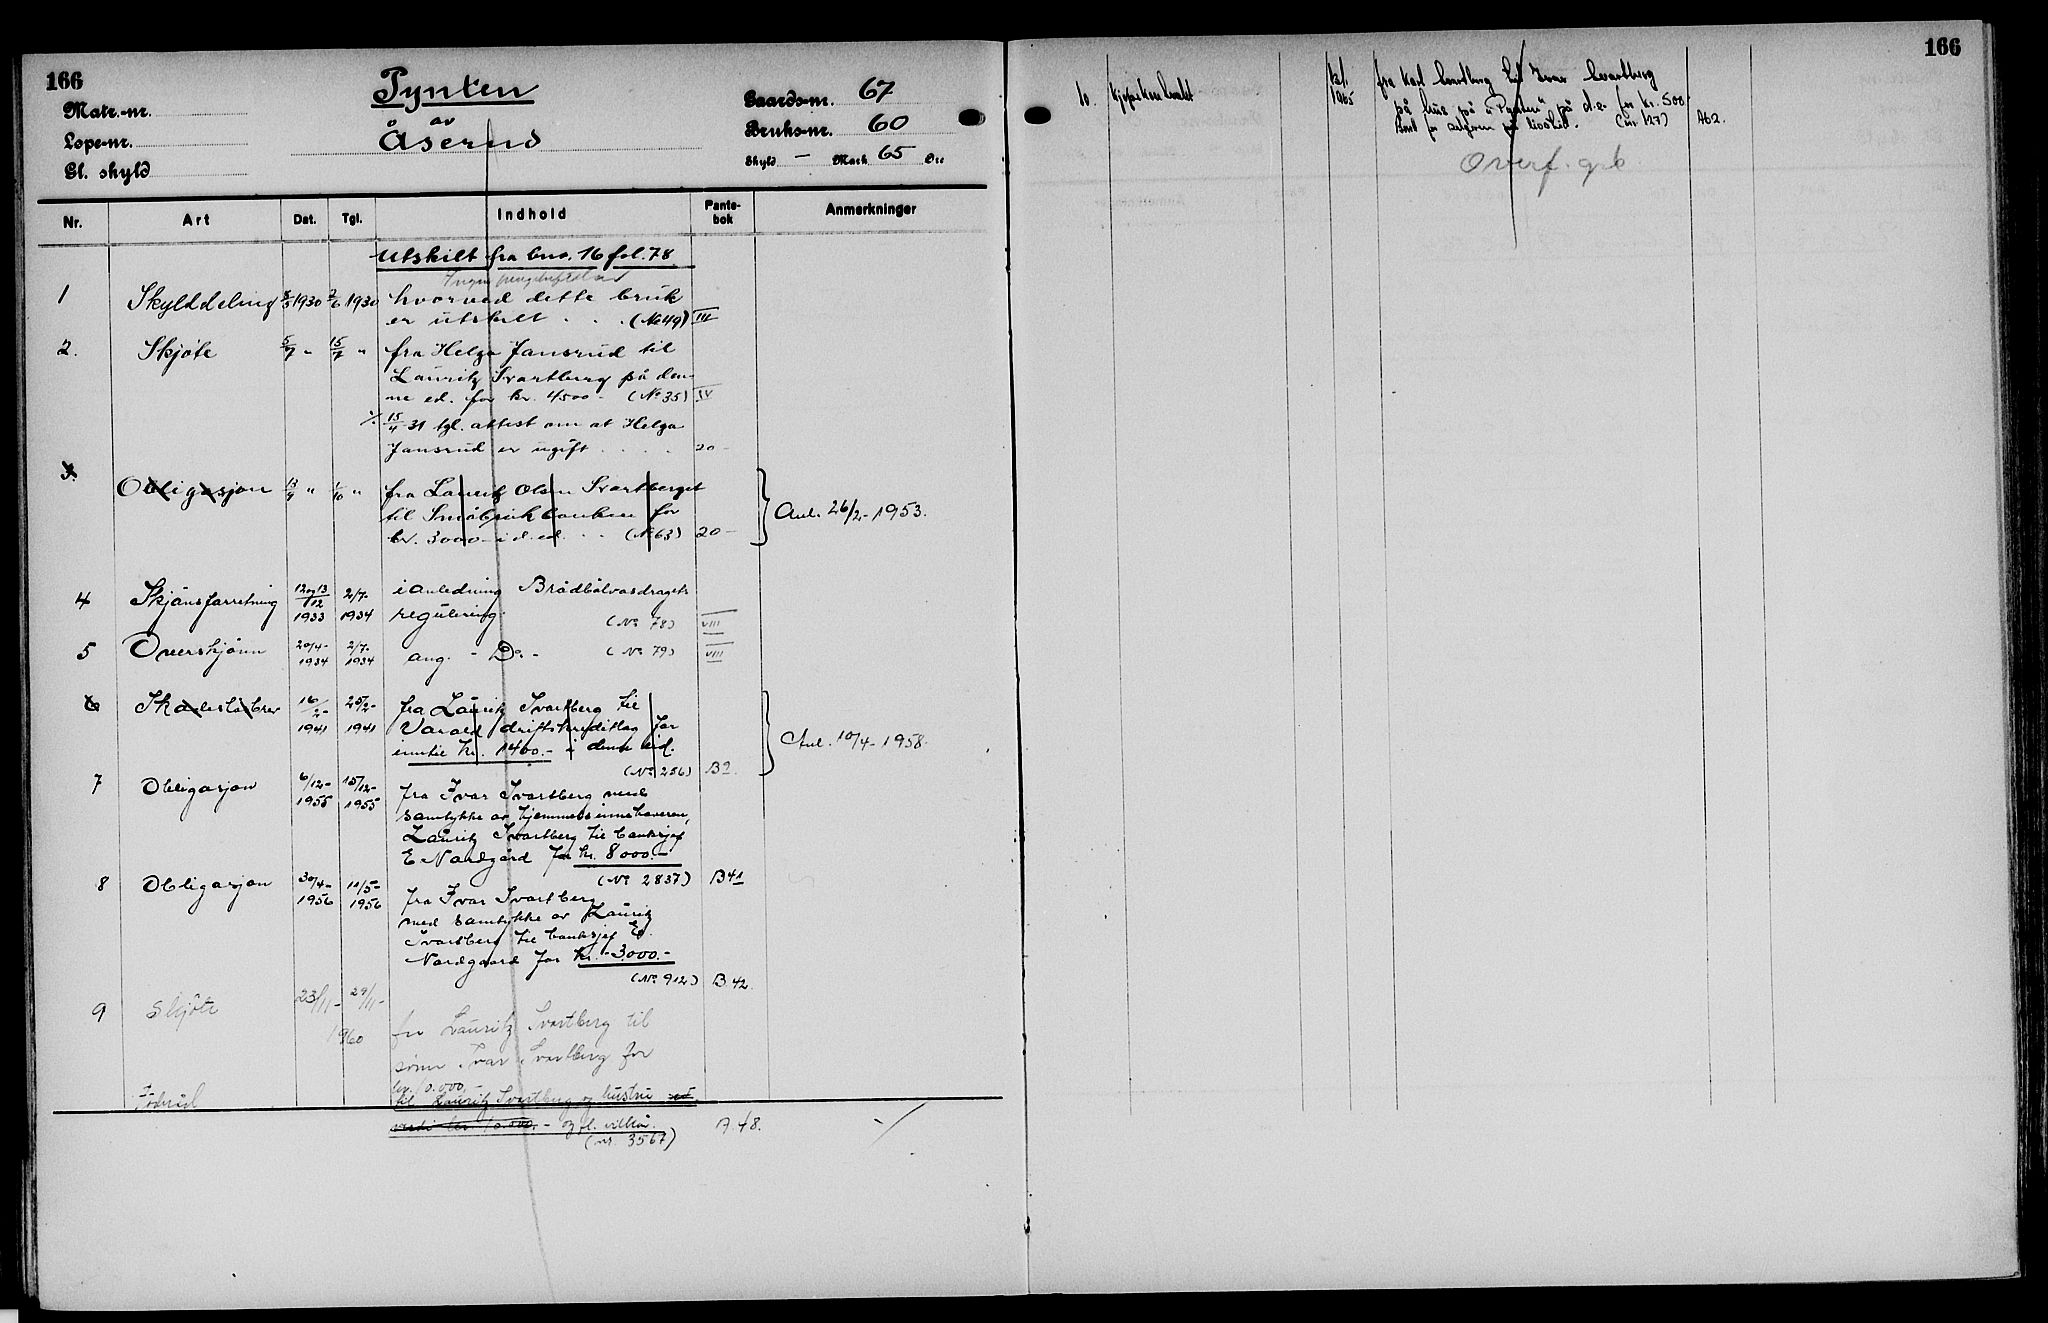 166
Pynten
av
Åserud
Matr.-nr.
Løpe-nr.
Gl. skyld
Gaards-nr. 67
Bruks-nr. 60
Skyld - Mark 65 Øre
Nr. Art Dat. Tgl. Indhold Pante-bok Anmerkninger
Utskilt fra bno. 16 fol. 78
Ingen
1 Skylddeling 1930 2/6 1930 hvorved dette bruk
er utskilt . . . (No 49) III
2. Skjøte 5/7 " 15/7 " fra Helga Jansrud til
Lauritz Svartberg på den-
ne ed. for kr. 4500- (No 35) IV
15/4 31 tgl. attest om at Helga
Jansrud er ugift . . . . 20-
3. Obligasjon 13/9 " 1/10 " fra Lauritz Olsen Svartberget
til Småbrukbanken for
kr. 3000- i d. ed. . . (No 63) 20-
Avl. 26/2-1953.
4 Skjønsforretning 12 og 13/12 1933 2/7- 1934 i anledning Brødbølvasdragets
regulering (No 78) VIII
5 Overskjønn 20/4- 1934 2/7- 1934 ang. - Do - (No 79) VIII
6 Skadesløsbrev 16/2- 1941 25/2- 1941 fra Lauritz Svartberg til
Varald driftskredittlag for
inntil kr. 1400.- i denne eid.
(No 256) B2.
Avl. 10/4-1958.
7 Obligasjon 6/12- 1955 15/12- 1955 fra Ivar Svartberg med
samtykke av hjemmelsinnehaveren,
Lauritz Svartberg til banksjef
E Nordgård for kr. 8000.-
(No 2837) B41
8 Obligasjon 30/4- 1956 11/5- 1956 fra Ivar Svartberg
med samtykke av Lauritz
Svartberg til banksjef E.
Nordgaard for kr. -3000.-
(No 912) B 42.
9 Skjøte 23/11- 29/11- 1960 fra Lauritz Svartberg til
sønn Ivar Svartberg for
kr. 10.000.-
Føderåd til Lauritz Svartberg og hustru
verdi kr. 10.000.- og fl. vilkår.
(nr. 3567) A.48.
166
10. Kjøpekontrakt 1965 fra Karl Svartberg til Ivar Svartberg
på hus på "Pynten" på d.e. for kr. 500
for selgeren på livstid. (nr 127) A62.
Overf. grb.